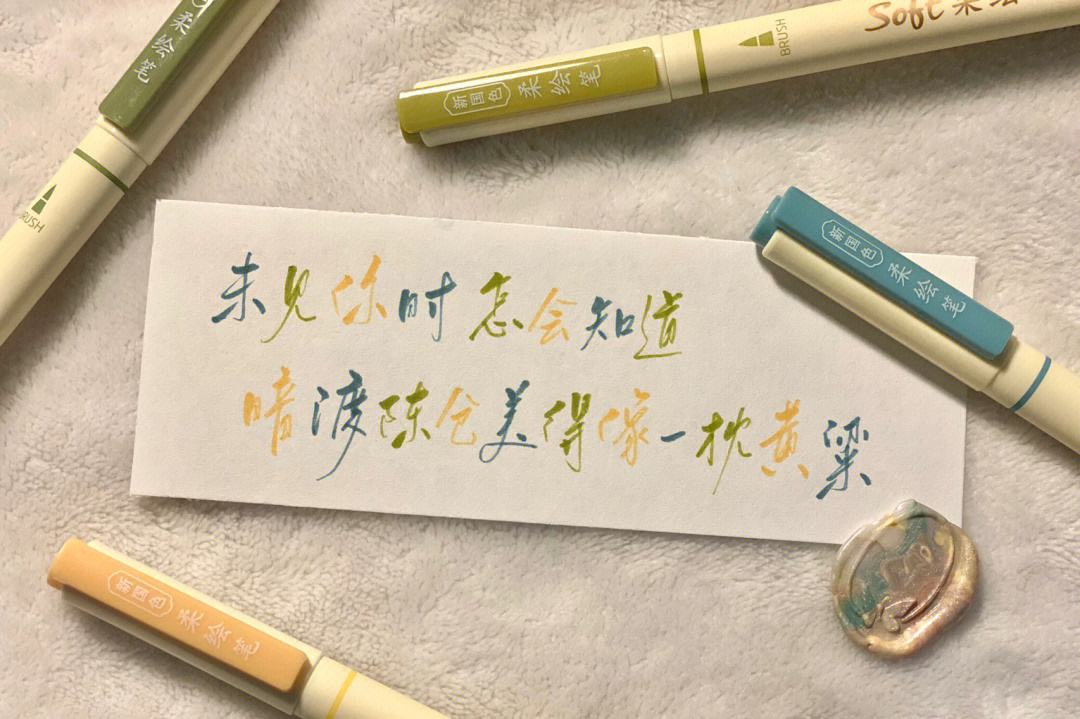 柔绘笔
BRUSH
新国色 柔绘笔
BRUSH
Soft 柔绘
未见你时怎会知道
暗渡陈仓美得像一枕黄粱
新国色 柔绘笔
新国色 柔绘笔